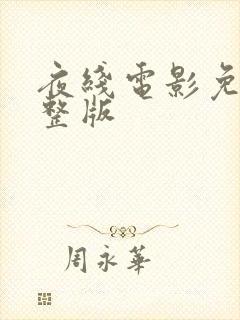 夜綫電影免
整版
周永華